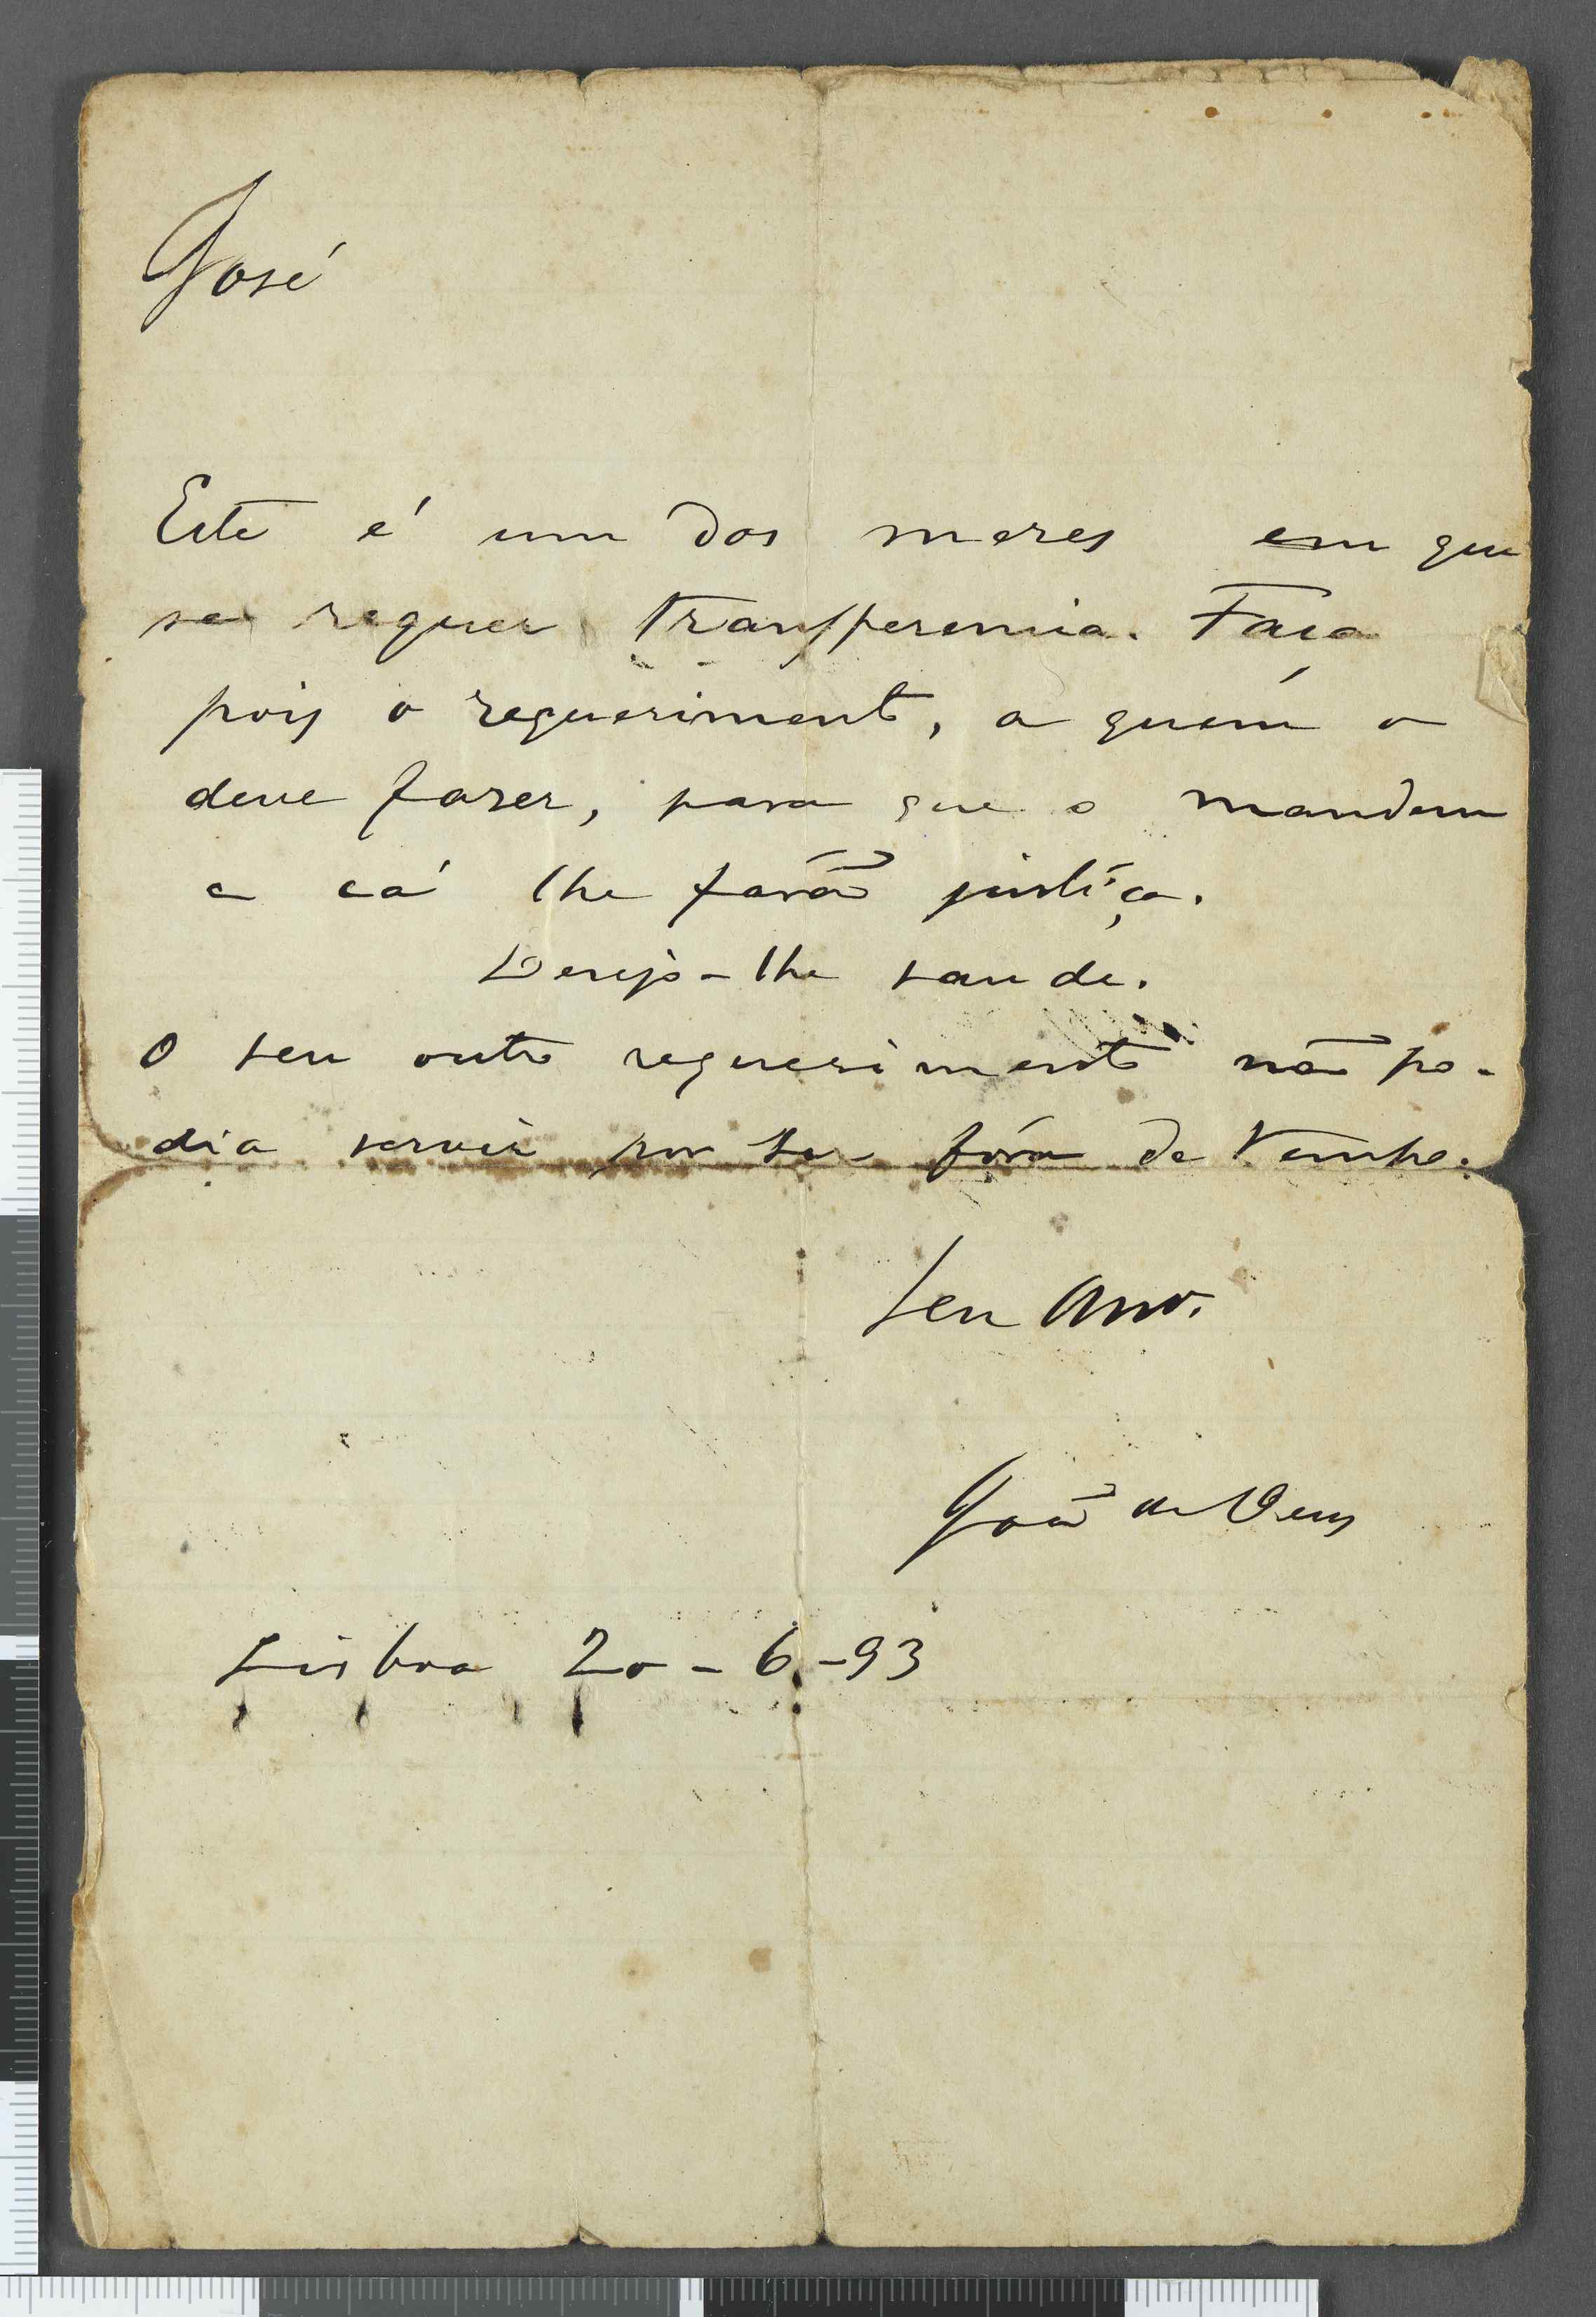 José
Este é um dos meses em que
se requer transferencia. Faça
pois o requerimento, a quem o
deve fazer, para que o mandem
e cá lhe farão justiça.
Desejo-lhe saude.
O seu outro requerimento não po-
dia servir por ser fóra de tempo.
Seu Amo.
João de Deus
Lisboa 20-6-93